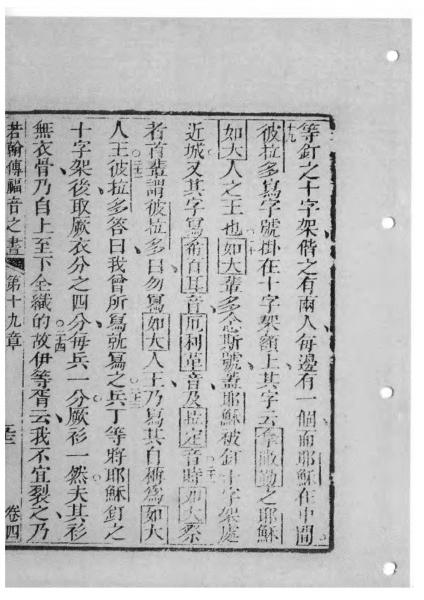 等釘之十字架偕之有兩人每邊有一個而耶穌在中間
十九
彼拉多寫字號掛在十字架額上其字云拿撒勒之耶穌
如大人之王也二十如大輩多念斯號蓋耶穌被釘十字架處
近城又其字寫希百耳音厄利革音及拉定音時二十一如大祭
者首輩謂彼拉多曰勿寫如大人王乃寫其自稱為如大
人王二十二彼拉多答曰我曾所寫就寫之二十三兵丁等將耶穌釘之
十字架後取厥衣分之四分每兵一分厥衫一然夫其衫
無衣骨乃自上至下全織的故二十四伊等胥云我不宜裂之乃
若翰傳福音之書 第十九章 卷四